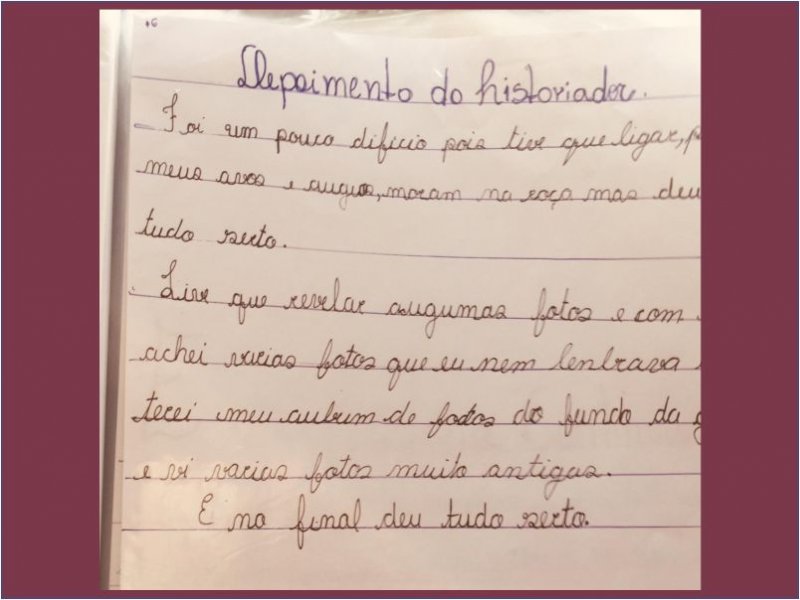 16
Depoimento do historiador.
Foi um pouco dificio pois tive que ligar, p
meus avos e augus, moram na roça mas deu
tudo serto.
Tive que revelar augumas fotos e com
achei varias fotos que eu nem lenbrava
terei meu aubum de fotos do fundo da g
e vi varias fotos muito antigas.
E no final deu tudo serto.